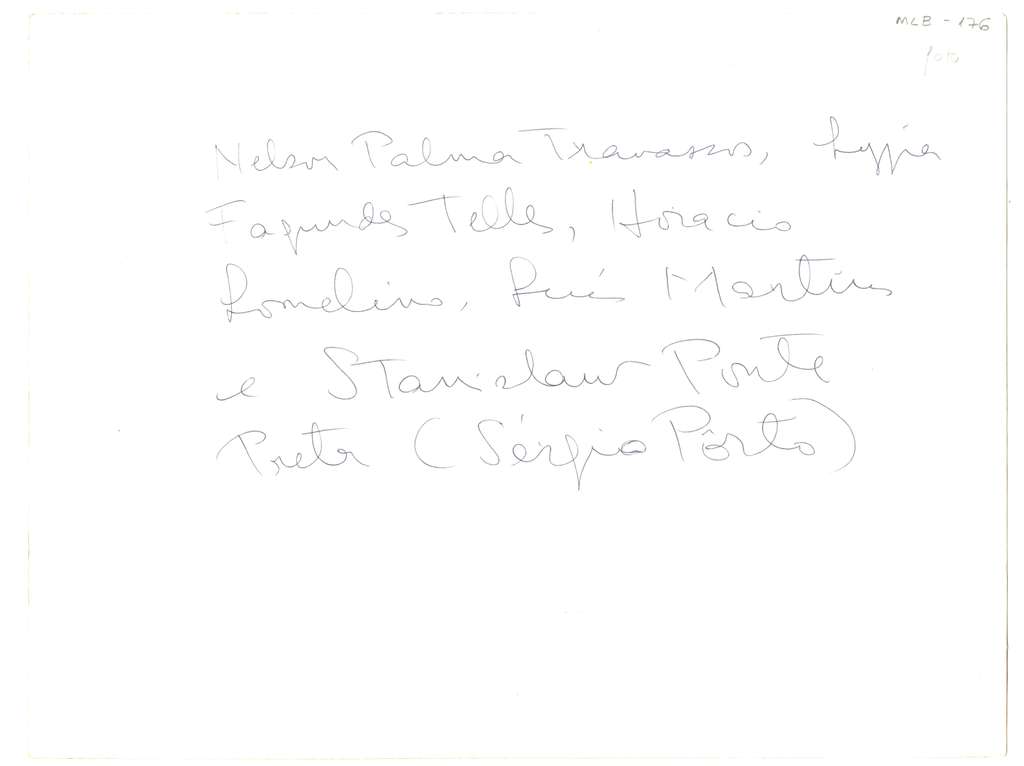 MLB - 176
foto
Nelson Palma Travassos, Lygia
Fagundes Telles, Horacio
Lomelino, Luís Martins
e Stanislaw Ponte
Preta (Sérgio Pôrto)